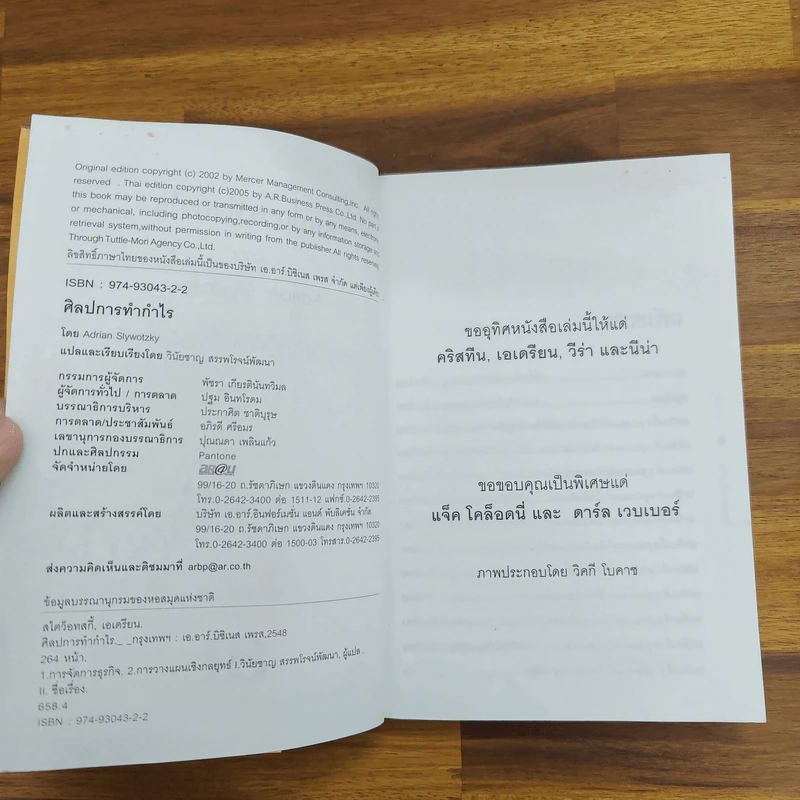 Original edition copyright (c) 2002 by Mercer Management Consulting,Inc. All rights
reserved . Thai edition copyright (c)2005 by A.R.Business Press Co.,Ltd. No part of
this book may be reproduced or transmitted in any form or by any means, electronic
or mechanical, including photocopying,recording,or by any information storage and
retrieval system,without permission in writing from the publisher.All rights reserved
Through Tuttle-Mori Agency Co.,Ltd.
ลิขสิทธิ์ภาษาไทยของหนังสือเล่มนี้เป็นของบริษัท เอ.อาร์.บิซิเนส เพรส จำกัด แต่เพียงผู้เดียว
ISBN : 974-93043-2-2
ศิลปการทำกำไร
โดย Adrian Slywotzky
แปลและเรียบเรียงโดย วินัยชาญ สรรพโรจน์พัฒนา
กรรมการผู้จัดการ พัชรา เกียรตินันทวิมล
ผู้จัดการทั่วไป / การตลาด ปฐม อินทโรดม
บรรณาธิการบริหาร ประกาศิต ชาติบุรุษ
การตลาด/ประชาสัมพันธ์ อภิรดี ศรีอมร
เลขานุการกองบรรณาธิการ ปุณณดา เพลินแก้ว
ปกและศิลปกรรม Pantone
จัดจำหน่ายโดย
99/16-20 ถ.รัชดาภิเษก แขวงดินแดง กรุงเทพฯ 10320
โทร.0-2642-3400 ต่อ 1511-12 แฟกซ์.0-2642-2395
ผลิตและสร้างสรรค์โดย บริษัท เอ.อาร์.อินฟอร์เมชั่น แอนด์ พับลิเคชั่น จำกัด
99/16-20 ถ.รัชดาภิเษก แขวงดินแดง กรุงเทพฯ 10320
โทร.0-2642-3400 ต่อ 1500-03 โทรสาร.0-2642-2395
ส่งความคิดเห็นและติชมมาที่ arbp@ar.co.th
ข้อมูลบรรณานุกรมของหอสมุดแห่งชาติ
สไลว็อทสกี้, เอเดรียน.
ศิลปการทำกำไร._ _กรุงเทพฯ : เอ.อาร์.บิซิเนส เพรส,2548
264 หน้า.
1.การจัดการธุรกิจ. 2.การวางแผนเชิงกลยุทธ์ I.วินัยชาญ สรรพโรจน์พัฒนา, ผู้แปล .
II. ชื่อเรื่อง.
658.4
ISBN : 974-93043-2-2
ขออุทิศหนังสือเล่มนี้ให้แด่
คริสทีน, เอเดรียน, วีร่า และนีน่า
ขอขอบคุณเป็นพิเศษแด่
แจ็ค โคล็อดนี่ และ ดาร์ล เวบเบอร์
ภาพประกอบโดย วิคกี โบคาช